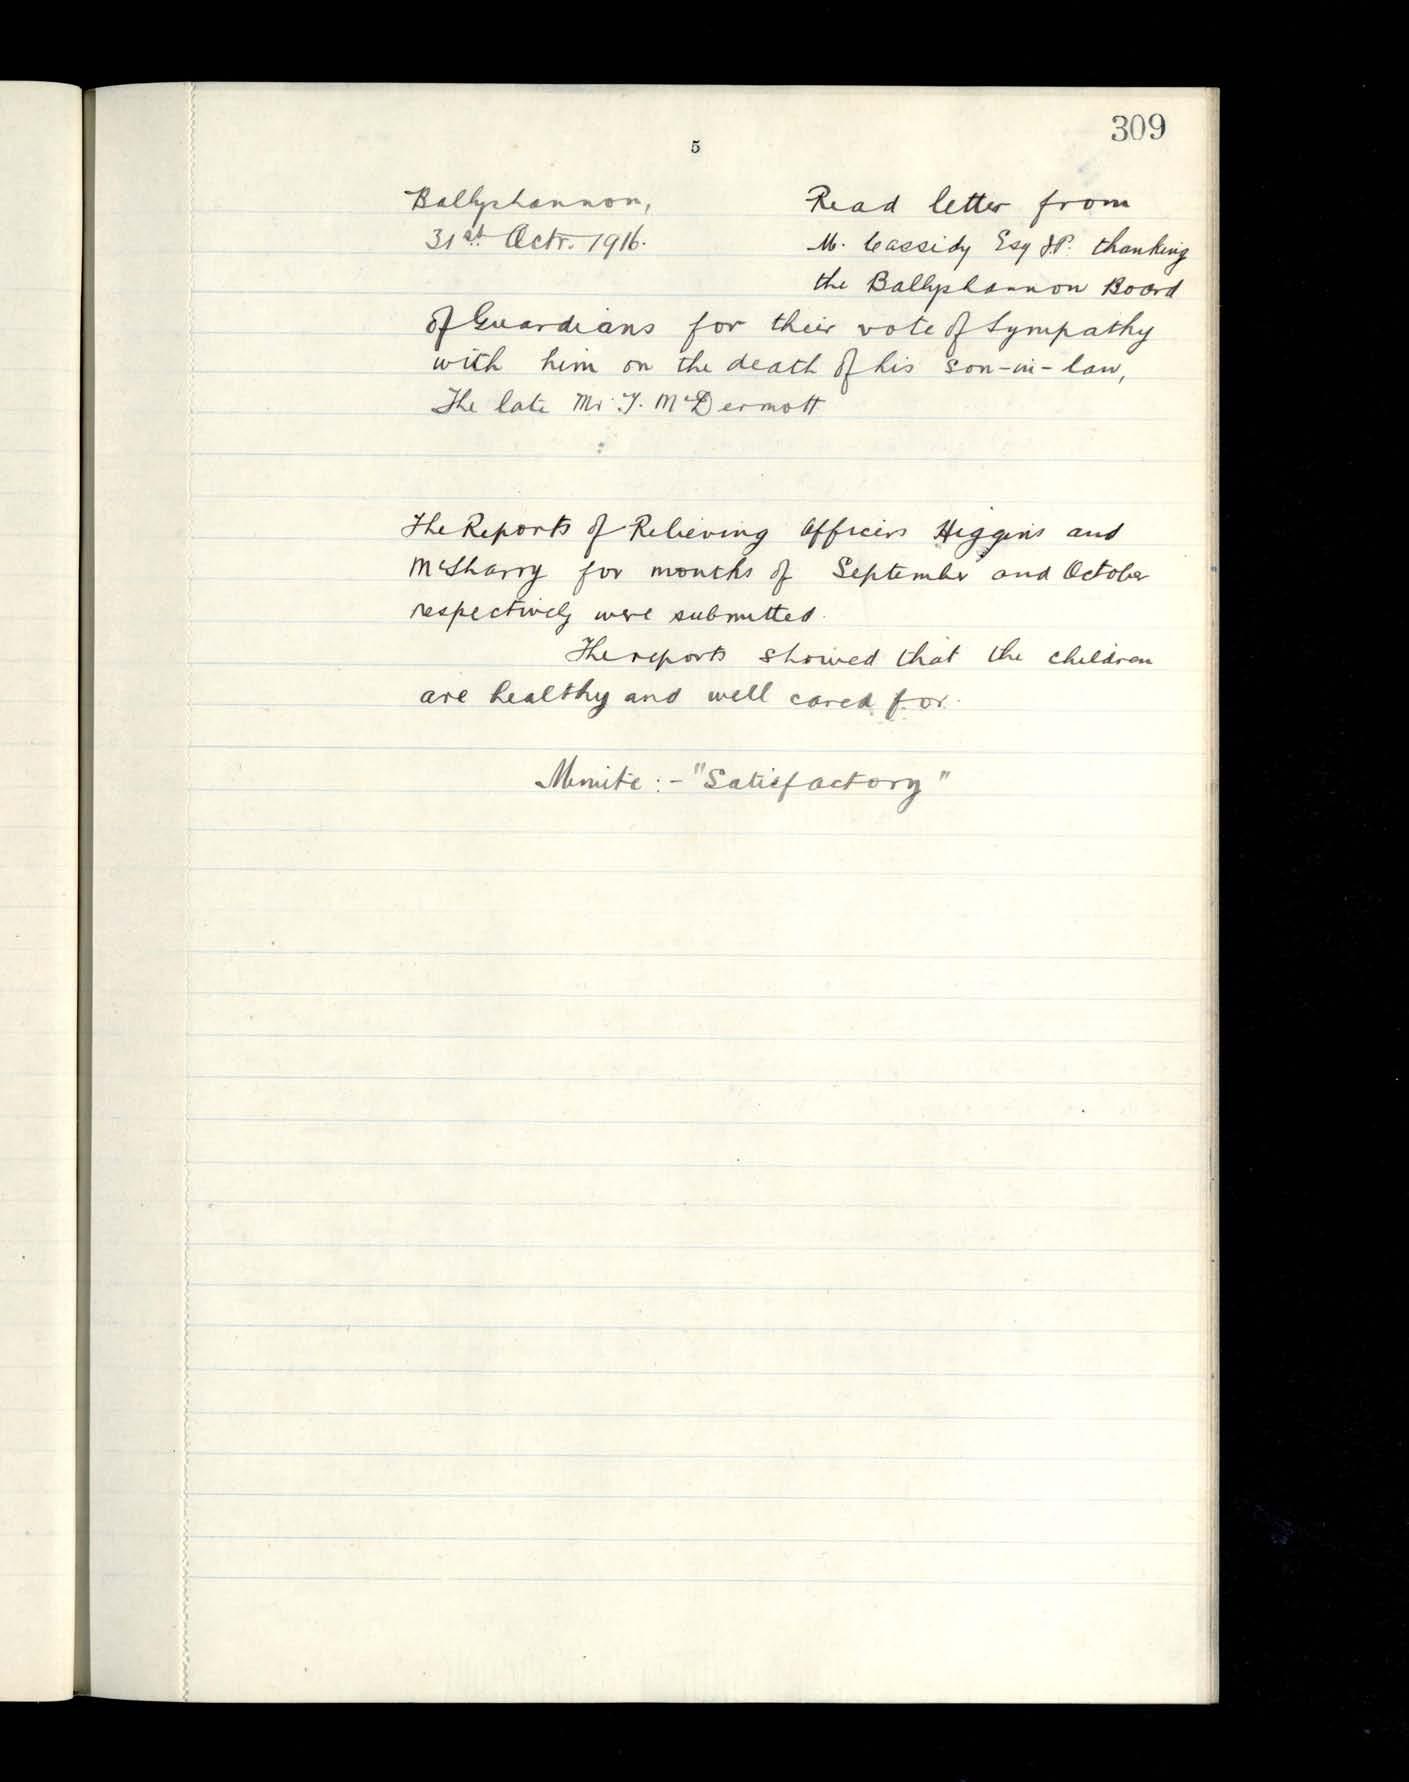 309
5
Ballyshannon,
31st. Octr. 1916.
Read letter from
M. Cassidy Esq J.P. thanking
the Ballyshannon Board
of Guardians for their vote of Sympathy
with him on the death of his son-in-law,
The late Mr. T. McDermott
The Reports of Relieving Officers Higgins and
McSharry for months of September and October
respectively were submitted.
The reports showed that the children
are healthy and well cared for.
Minute :- "Satisfactory"